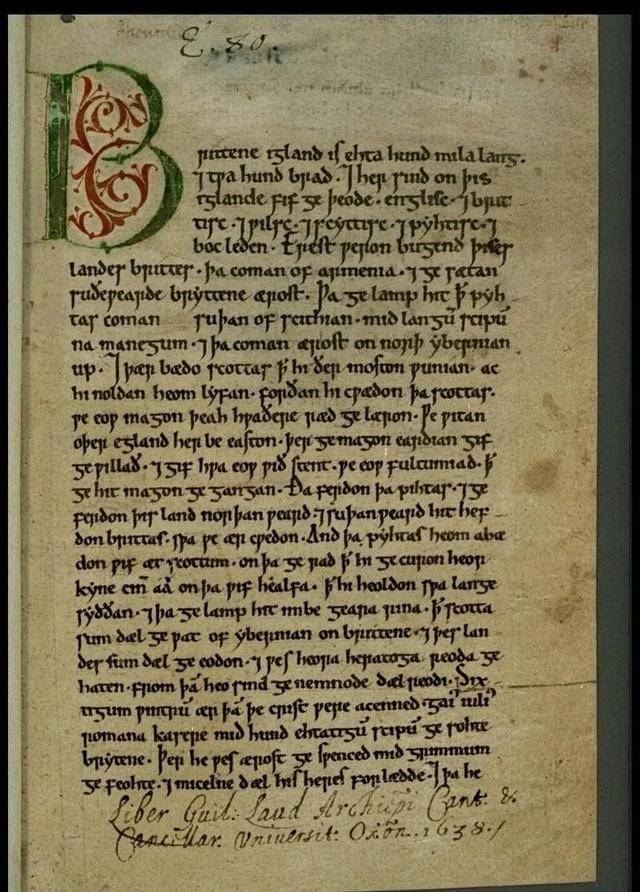 E. 80.
Brittene igland is ehta hund mila lang.
⁊ tƿa hund brad. ⁊ her sind on þis
iglande fif ge þeode. englisc. ⁊ brit
tisc. ⁊ ƿilsc. ⁊ scyttisc. ⁊ pyhtisc. ⁊
boc leden. Erest ƿeron bugend þises
landes brittes. þa coman of armenia. ⁊ ge sætan
suðeƿearde bryttene ærost. Þa ge lamp hit ꝥ pyh
tas coman suþan of scithian. mid langū scipū
na manegum. ⁊ þa coman ærost on norþ ybernian
up. ⁊ þær bædo scottas ꝥ hi ðer moston ƿunian. ac
hi noldan heom lyfan. forðan hi cƿædon þa scottas.
ƿe eoƿ magon þeah hƿaðere ræd ge læron. Ƿe ƿitan
oþer egland her be easton. þer ge magon eardian gif
ge ƿillað. ⁊ gif hƿa eoƿ ƿið stent. ƿe eoƿ fultumiað. ꝥ
ge hit magon ge gangan. Ða ferdon þa pihtas. ⁊ ge
ferdon þis land norþan ƿeard. ⁊ suþan ƿeard hit hef
don brittas. sƿa ƿe ær cƿedon. And þa pyhtas heom abæ
don ƿif æt scottum. on þa ge rad ꝥ hi ge curon heor
kyne cīn aá on þa ƿif healfa. ꝥ hi heoldon sƿa lange
syððan. ⁊ þa ge lamp hit imbe geara rina. ꝥ scotta
sum dæl ge ƿat of ybernian on brittene. ⁊ þes lan
des sum dæl ge eodon. ⁊ ƿes heora heratoga reoda ge
haten. from þā heo sind ge nemnode dæl reodi. Six
tigum ƿintrū ær þā þe crist ƿere acenned. gaiꝰ iuliꝰ
romana kasere mid hund ehtatigū scipū ge sohte
brytene. Þer he ƿes ærost ge sƿenced mid grimmum
ge feohte. ⁊ micelne dæl his heres for lædde. ⁊ þa he
Liber Guil: Laud Archiepi Cant. &
Cancellar. Vniversit. Oxon. 1638.